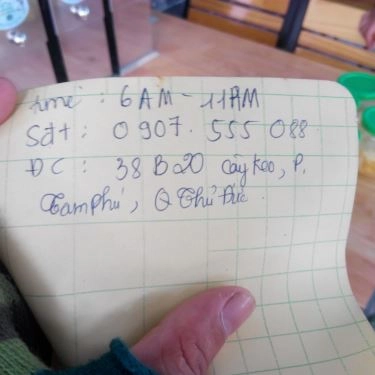 time : 6AM - 11AM
Sđt : 0907. 555 088
ĐC : 38 B20 Cây Keo, P.
Tam Phú, Q Thủ Đức